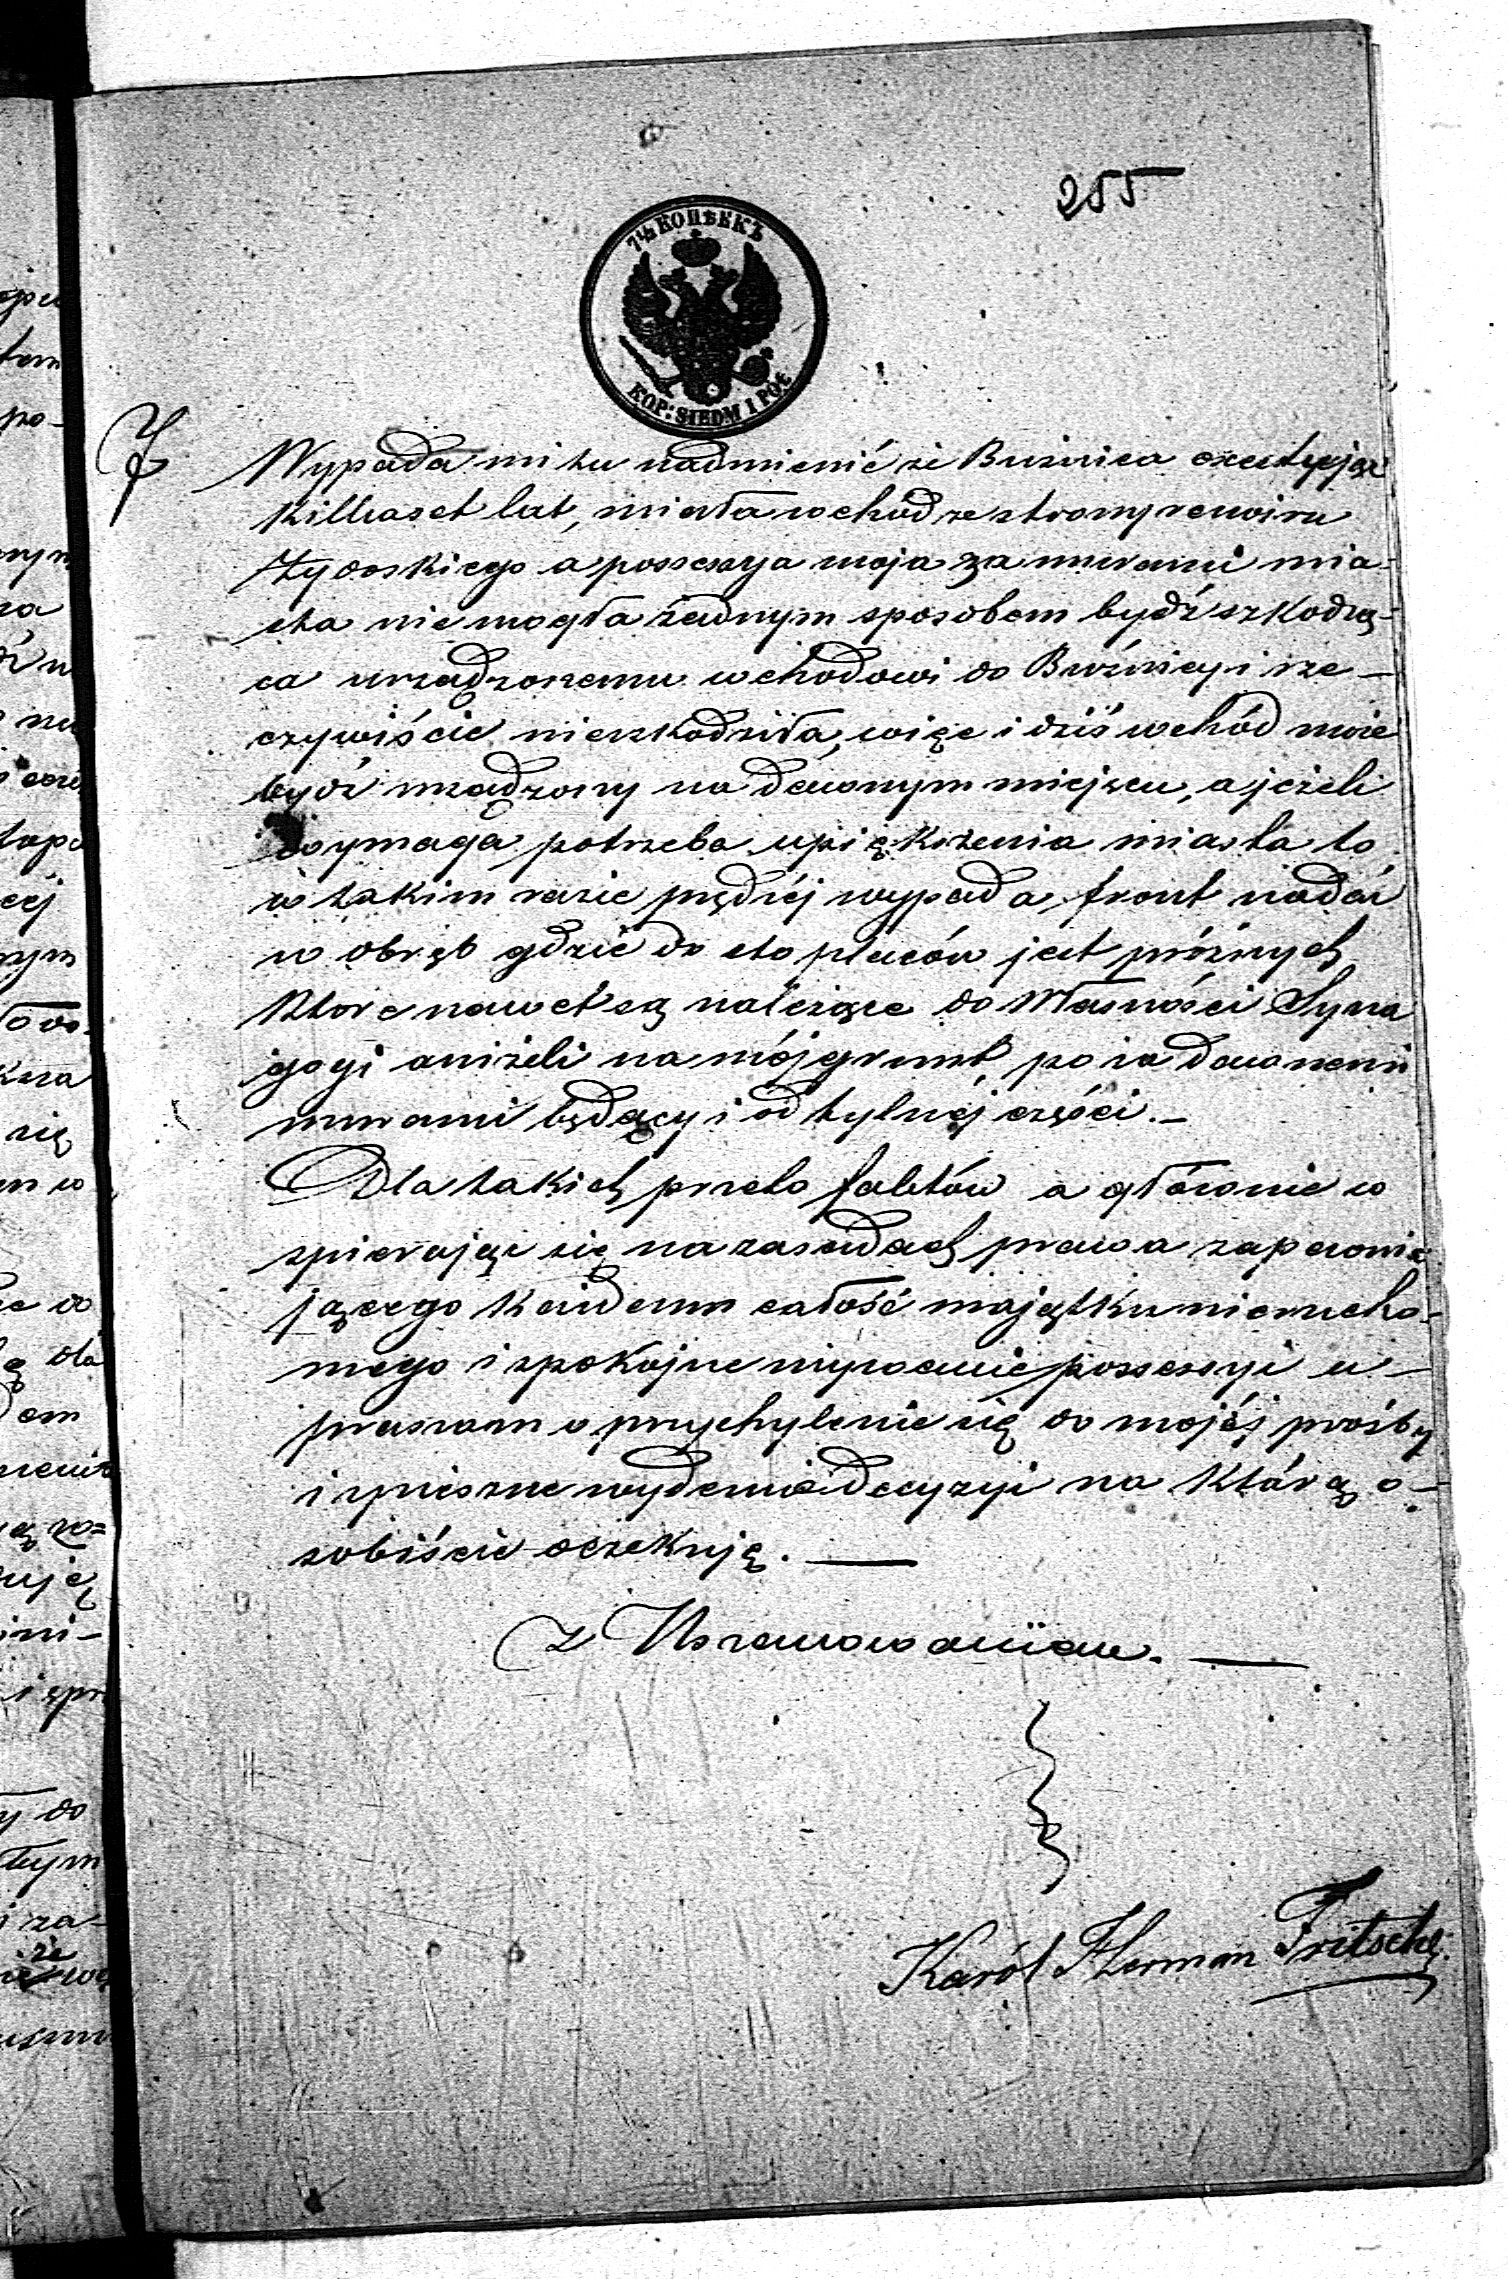 255
7½ КОПѢЕКЪ
KOP: SIEDM I PÓŁ
7
Wypada mi tu nadmienić że Buźnica exestując
Kilkaset lat, miała wchód ze strony rewiru
żydoskiego a possessya moja za murami mia-
sta nie mogła żadnym sposobem bydź szkodzą-
ca urządzonemu wchodowi do Bużnicy i rze-
czywiście nieszkodziła, więc i dziś wchód może
bydź urządzony na dawnym miejscu, a jeżeli
wymaga potrzeba upiękrzenia miasta to
w takim razie prędzéj wypada front nadać
w obręb gdzie do sto placów jest próżnych
Które nawet są należące do Własności Syna
gogi aniżeli na mój grunt po za dawnemi
murami będący i od tylnéj części. –
Dla takich przeto faktów a głównie w
spierając się na zasadach prawa zapewnia
jącego każdemu całość majątku nierucho-
mego i spokojne używanie possessyi u-
praszam o przychylenie się do mojéj prośby
i spieszne wydanie decyzyi na którą o-
sobiście oczekuję. —
z Uszanowaniem. —
Karól Herman Fritsche.